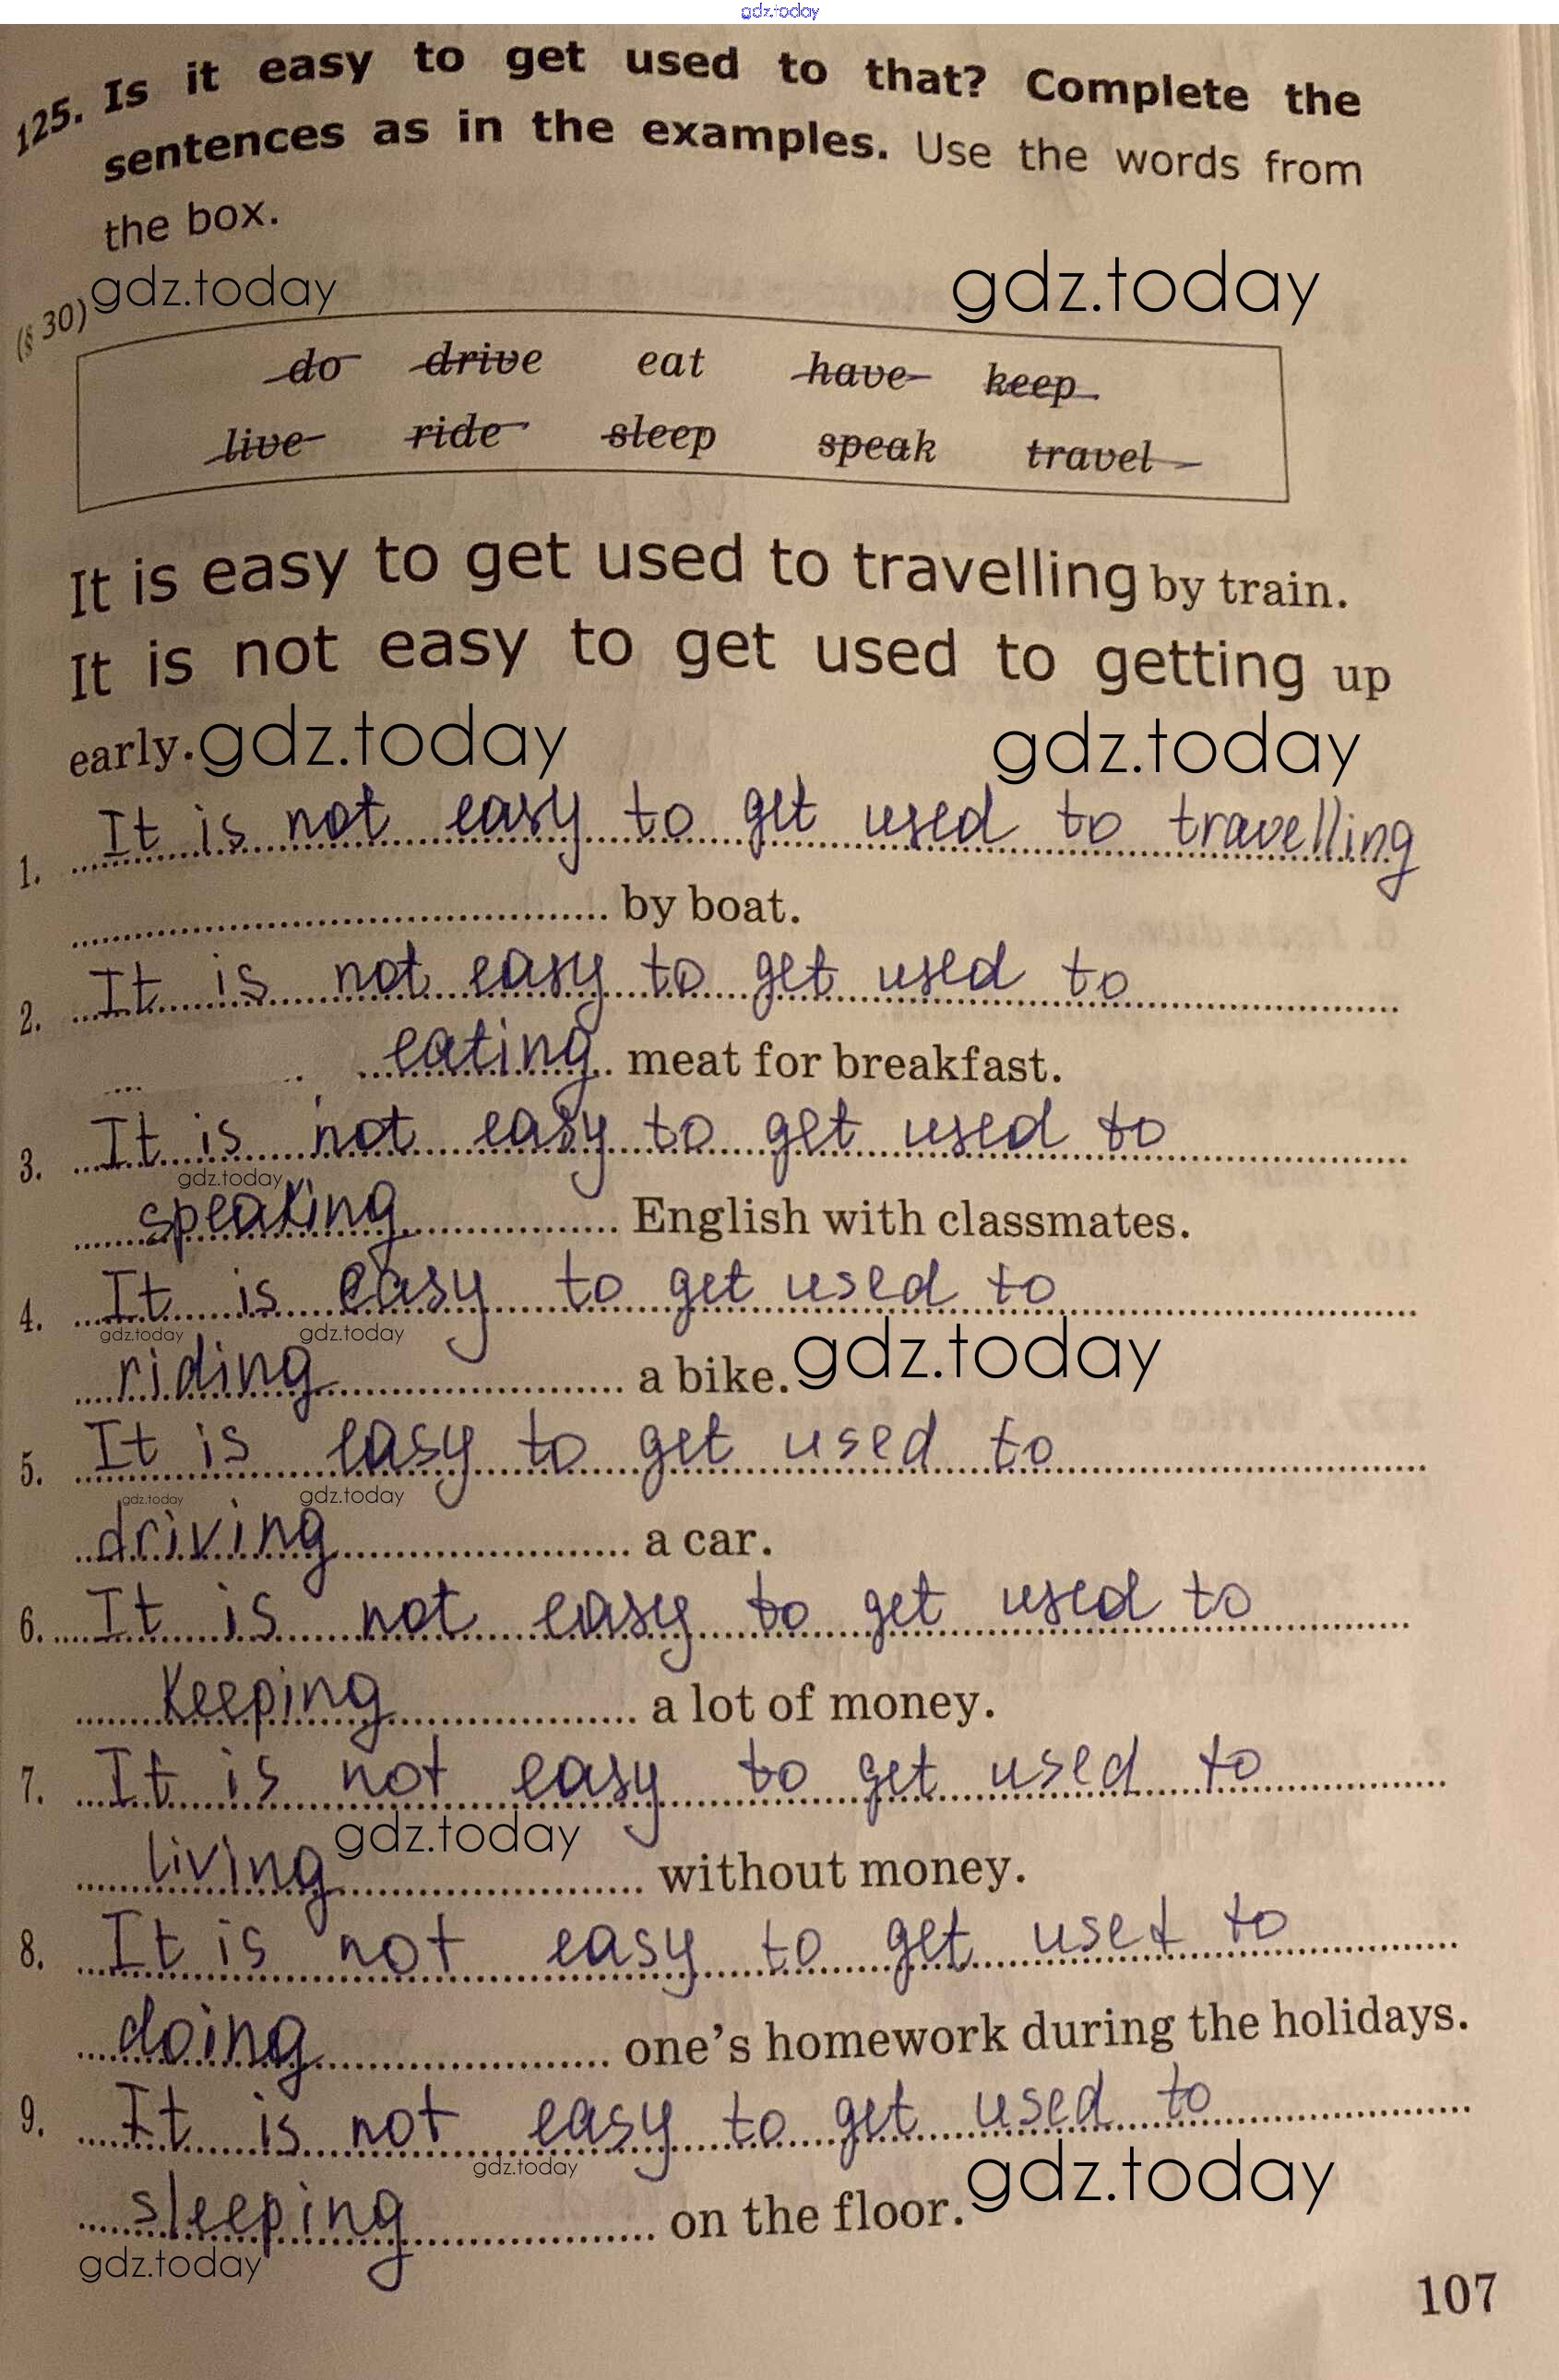 gdz.today
125. Is it easy to get used to that? Complete the
sentences as in the examples. Use the words from
the box.
gdz.today gdz.today
(§ 30)
do drive eat have keep
live ride sleep speak travel
It is easy to get used to travelling by train.
It is not easy to get used to getting up
early. gdz.today gdz.today
1. It is not easy to get used to travelling
by boat.
2. It is not easy to get used to
eating meat for breakfast.
3. It is not easy to get used to
gdz.today
speaking English with classmates.
4. It is easy to get used to
gdz.today gdz.today
riding a bike. gdz.today
5. It is easy to get used to
gdz.today gdz.today
driving a car.
6. It is not easy to get used to
keeping a lot of money.
7. It is not easy to get used to
gdz.today
living without money.
8. It is not easy to get uset to
doing one's homework during the holidays.
9. It is not easy to get used to
gdz.today
sleeping on the floor. gdz.today
gdz.today
107